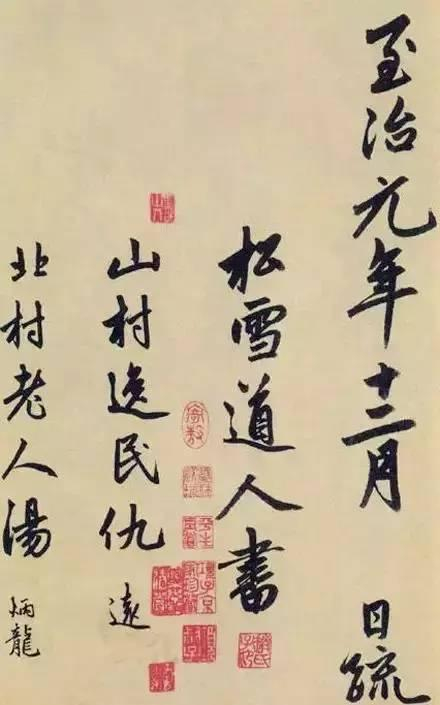 至治元年十二月　日疏
松雪道人書
山村逸民仇遠
北村老人湯炳龍
趙氏子昂